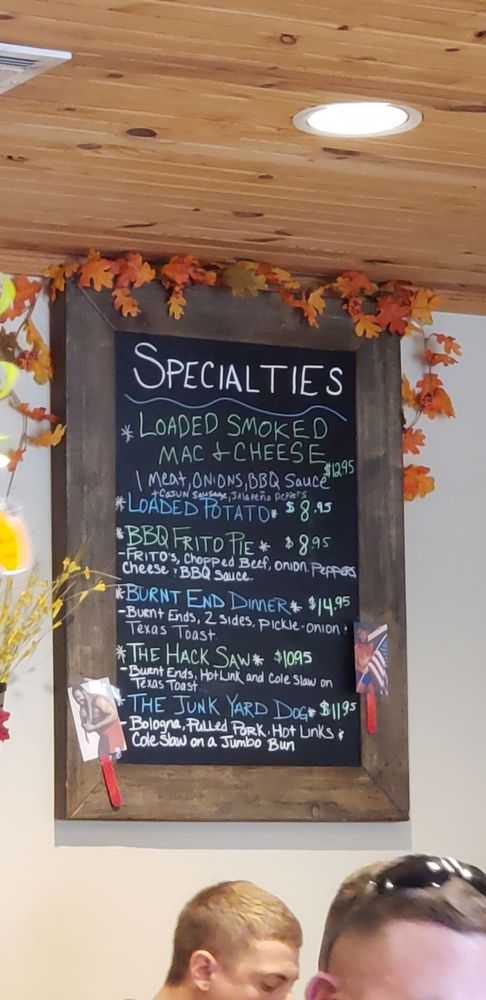 SPECIALTIES
* LOADED SMOKED
MAC & CHEESE
$12.95
1 Meat, ONIONS, BBQ Sauce
+ Cajun Sausage, Jalapeño Peppers
* LOADED POTATO * $8.95
* BBQ FRITO PIE * $8.95
- FRITO'S, Chopped Beef, onion, Peppers
Cheese & BBQ Sauce
* BURNT END DINNER * $14.95
- Burnt Ends, 2 Sides, pickle-onion &
Texas Toast
* THE HACK SAW * $10.95
- Burnt Ends, Hot Link and Cole Slaw on
Texas Toast
* THE JUNK YARD DOG * $11.95
- Bologna, Pulled Pork, Hot Links &
Cole Slaw on a Jumbo Bun